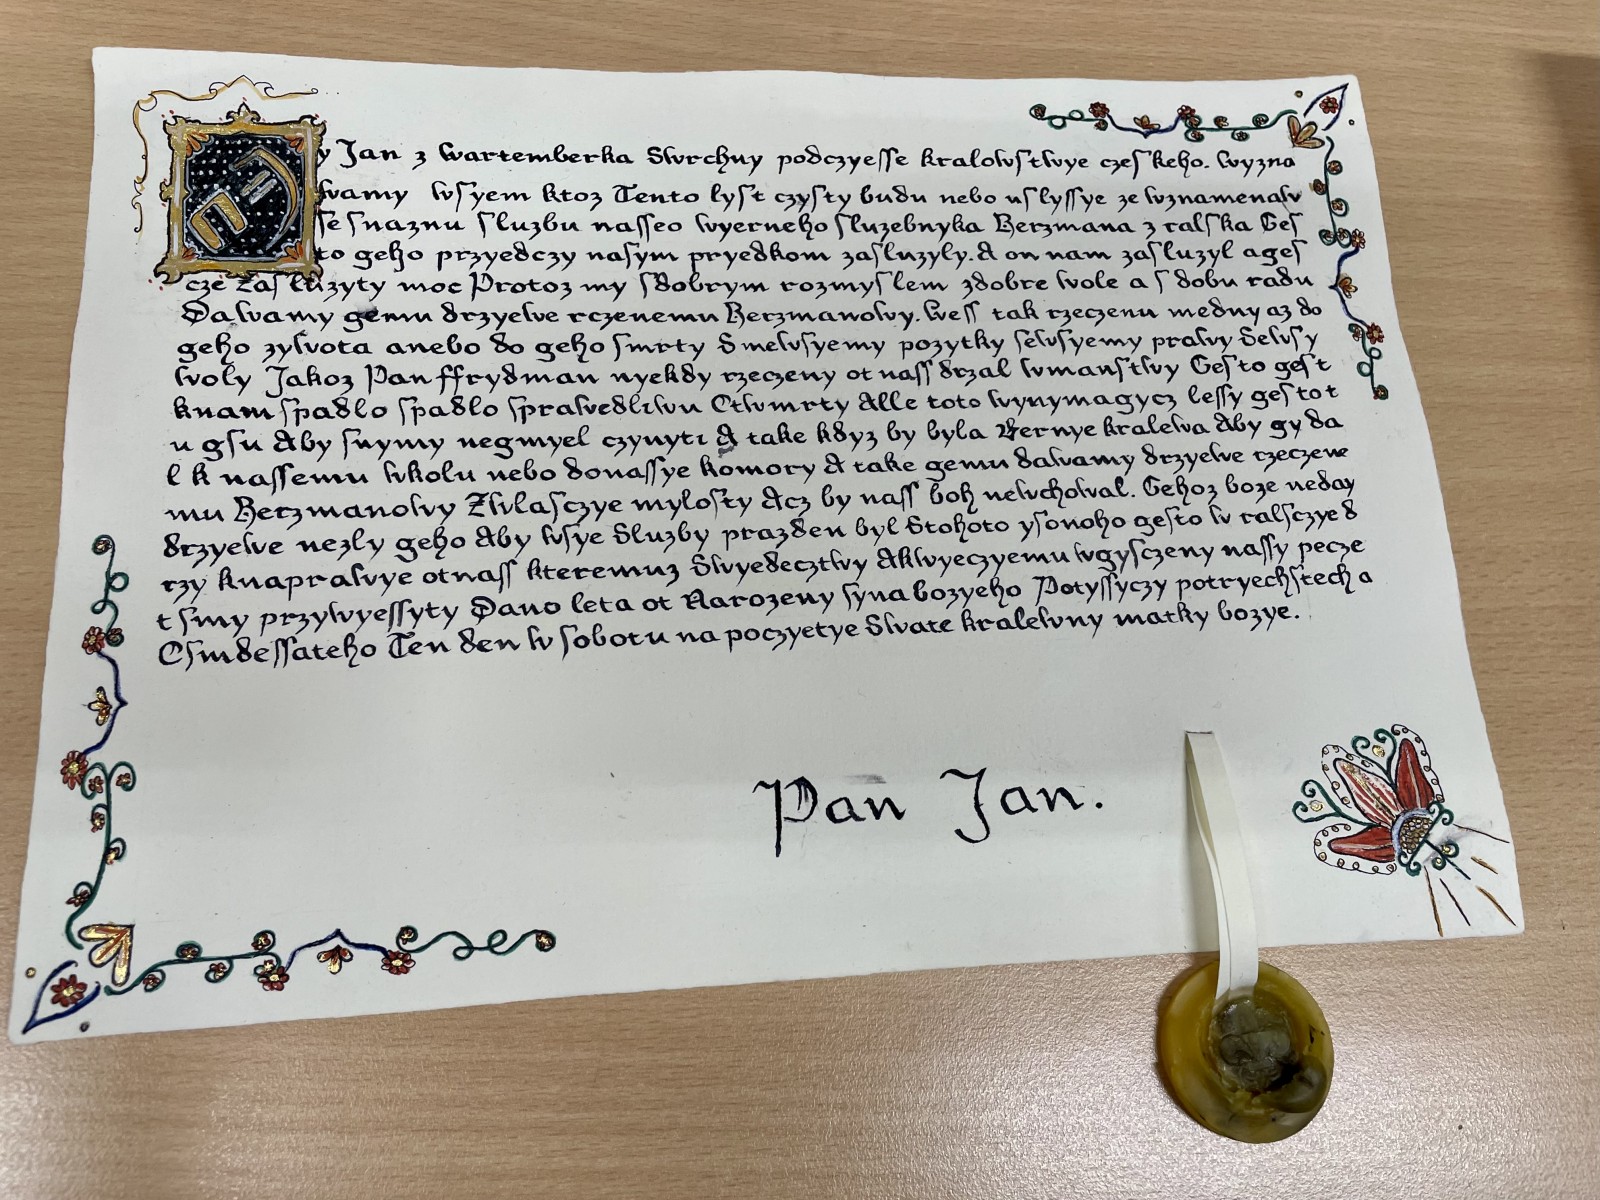 My Jan z wartemberka Swrchny podczyesse kralowstwye czeskeho. wyzna
wamy wsyem ktoz Tento lyst czysty budu nebo uslyssye ze wznamenaw
se snaznu sluzbu nasseo wyerneho sluzebnyka Berzmana z ralska Ges
to geho przyedczy nasym pryedkom zasluzyly. A on nam zasluzyl a ges
cze zasluzyty moc Protoz my sdobrym rozmyslem zdobre wole a s dobu radu
Dawamy gemu drzyewe rczenemu Berzmanowy. wess tak rzeczenu medny az do
geho zywota anebo do geho smrty Smewsyemy pozytky sewsyemy prawy Sewsy
woly Jakoz Pan ffrydman nyekdy rzeczeny ot nass drzal wmanstwy Gesto gest
knam spadlo spadlo sprawedliwu Otwmrty Alle toto wynymagycz lessy gesto t
u gsu Aby snymy negmyel czynyti A take kdyz by byla Bernye kralewa Aby gy da
l k nassemu wkolu nebo donassye komory A take gemu dawamy drzyewe rzeczene
mu Berzmanowy Zwlasczye mylosty Acz by nass boh newchowal. Gehoz boze neday
drzyewe nezly geho Aby wsye Sluzby prazden byl Stohoto ysonoho gesto w ralsczye d
rzy knaprawye otnass kteremuz Swyedecztwy Akwyeczyemu wgysczeny nassy pecze
t smy przywyessyty Dano leta ot Narozeny syna bozyeho Potyssyczy potryechstech a
Osmdessateho Ten den w sobotu na poczyetye Swate kralewny matky bozye.
Pan Jan.